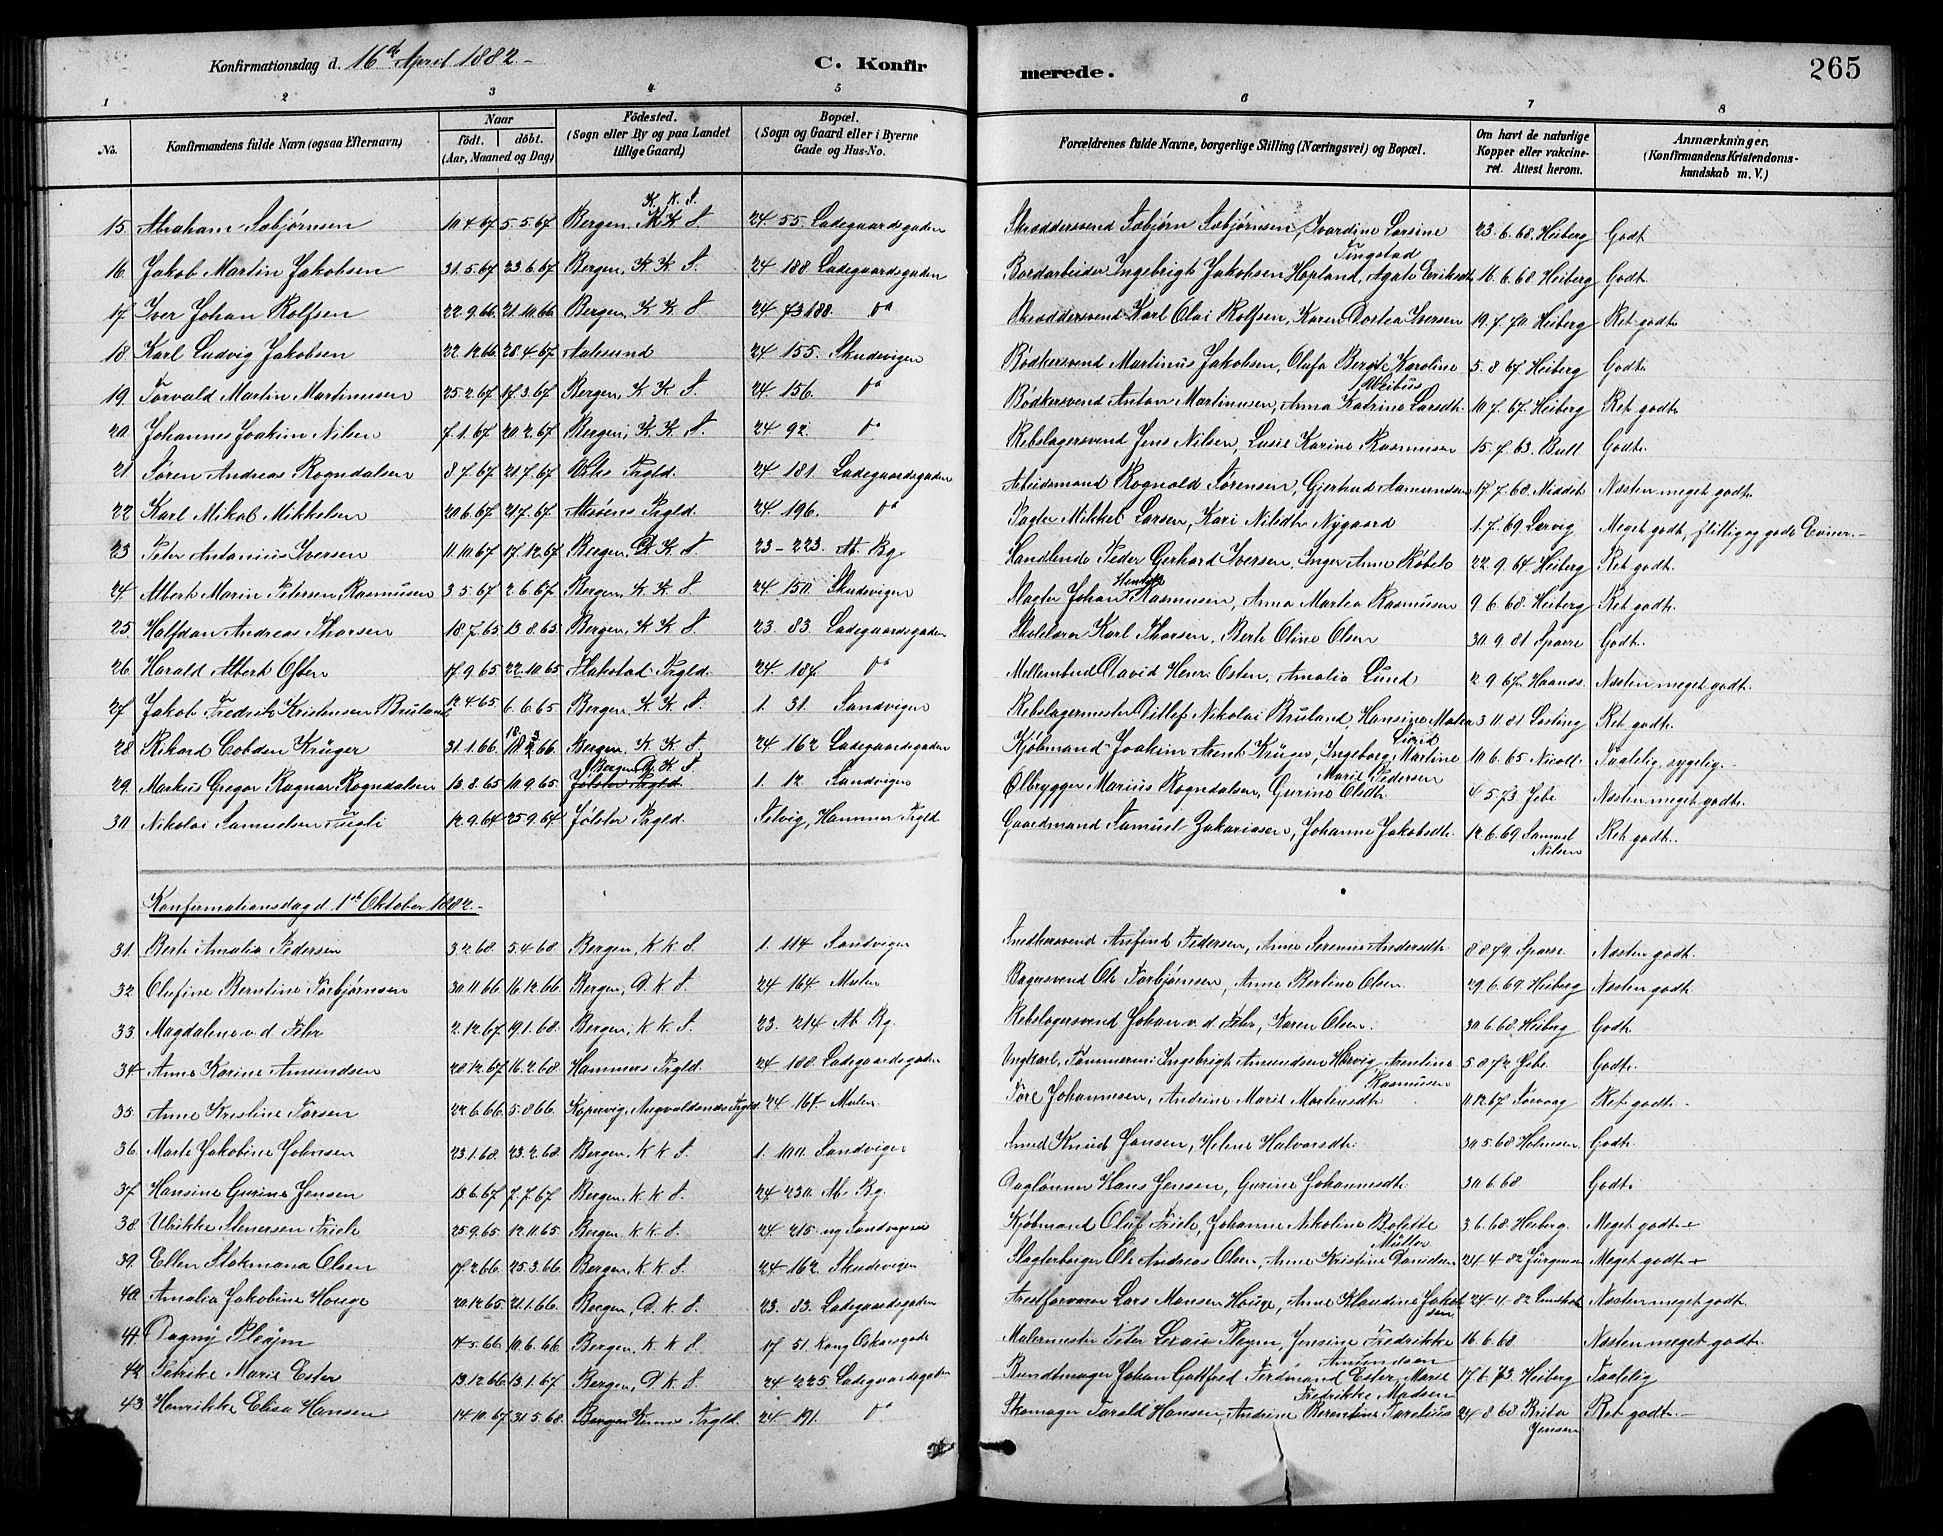 Konfirmationsdag d. 16de April 1882.- C. Konfirmerede. 265
1 2 3 4 5 6 7 8
No. Konfirmandens fulde Navn (ogsaa Efternavn) Naar födt. döbt. (Aar, Maaned og Dag) Födested. (Sogn eller By og paa Landet tillige Gaard) Bopæl. (Sogn og Gaard eller i Byerne Gade og Hus-No. Forældrenes fulde Navne, borgerlige Stilling (Næringsvei) og Bopæl. Om havt de naturlige Kopper eller vakcineret. Attest herom. Anmærkninger. (Konfirmandens Kristendomskundskab m. V.)
15. Abraham Sæbjørnsen 10.4.67 5.5.67 Bergen K. K. S. 24. 55. Ladegaardsgaden Skræddersvend Sæbjørn Sæbjørnsen, Ivardine Larsine Tingstad 23.6.68 Heiberg Godt
16. Jakob Martin Jakobsen 31.5.67 23.6.67 Bergen, K K S. 24 188 Ladegaardsgaden Bordarbeider Ingebrigt Jakobsen Hopland, Agate Eriksdt. 16.6.68 Heiberg Godt.
17. Iver Johan Rolfsen 22.9.66 21.10.66 Bergen, K K S 24 188. do Skræddersvend Karl Olai Rolfsen, Karen Dortea Iversen 19.7.70 Heiberg Ret godt
18. Karl Ludvig Jakobsen 22.12.66 28.4.67 Aalesund 24 155. Skudevigen Bødkersvend Martinus Jakobsen, Olufa Bergit Karoline 5.8.67 Heiberg Godt.
19. Torvald Martin Martinusen 25.2.67 17.3.67 Bergen, K K S. 24 156. do Bødkersvend Anton Martinusen, Anna Katrine Larsdt. 10.7.67. Heiberg Ret godt
20 Johannes Joakim Nilsen 7.1.67 20.2.67 Bergen, K. K. S. 24 92. do Rebslagersvend Jens Nilsen, Lusie Karine Rasmusen 15.7.63. Bull Godt.
21 Søren Andreas Rogndalsen 8.7.67 21.7.67 Prgld. 24 181. Ladegaardsgaden Arbeidsmand Rognald Sørensen, Gjertrud Aamundsen 17.7.68 Næsten meget godt.
22 Karl Mikal Mikkelsen 20.6.67 21.7.67. Prgld. 24 196. do Pagter Mikkel Larsen, Kari Nilsdt. Nygaard 1.7.69 Lervig Meget godt, flittig og gode Evner.-
23 Peter Antonius Iversen 11.10.67 17.12.67 Bergen, D K S 23-223. M. Bg. Handlende Peder Gerhard Iversen, Inger Anne Røbek 22.9.64 Heiberg Ret godt.
24. Albert Marin Petersen Rasmusen 3.5.67 2.6.67. Bergen, K K S 24 150. Skudevigen Slagter Johan Rasmusen, Anna Martea Rasmusen 9.6.68. Heiberg Ret godt.
25 Halfdan Andreas Thorsen 18.7.65 13.8.65 Bergen, K K S. 23. 83. Ladegaardsgaden Skolelærer Karl Thorsen, Berte Oline Olsen 30.9.81 Sparre Godt.
26 Harald Albert Osten 17.9.65 22.10.65 Flakstad Prgld. 24. 187. do David Henr. Osten, Amalia Lund 2.9.67. Næsten meget godt.
27 Jakob Fredrik Kristensen Bruland 12.4.65 6.6.65 Bergen, K. K. S. 1. 31. Sandvigen Rebslagermester Ditlef Nikolai Bruland, Hansine 3.11.81 Ret godt.
28 Rikard Cobden Krüger 31.1.66. 18.3.66 Bergen, K. K. S. 24 162 Ladegaardsgaden Kjøbmand Joakim Arent Krüger, Ingeborg Martine 10.6.65 Nicoll. Taalelig, sygelig.-
29. Markus Gregor Ragnar Rogndalsen 13.8.65 10.9.65 Bergen D. K. S Jølster Prgld 1. 12 Sandvigen Ølbrygger Marius Rogndalsen, Gurine Olsdt. Marie Pedersen 4.5.73 Jebe Næsten meget godt.
30 Nikolai Samuelsen 12.9.64 25.9.64 Jølster Prgld. Selvig, Hammer Prgld Gaardmand Samuel Zakariassen, Johanne Jakobsdt. 12.6.69 Samuel Nilsen Ret godt.
Konfirmationsdag d. 1ste Oktober 1882.-
31. Berte Amalia Pedersen 3.2.68. 5.4.68. Bergen, K K S. 1. 114 Sandvigen Snedkersvend Anfind Pedersen, Anne Serine Andersdt. 8.8.79 Sparre. Næsten godt.
32 Olufine Berntine Torbjørnsen 30.11.66 16.12.66 Bergen, D. K. S 24 164 Mulen Bagersvend Ole Torbjørnsen, Anne Bertine Olsen 29.6.69 Heiberg Næsten godt.
33. Magdalene v. d. Fehr 2.12.67 19.1.68. Bergen, K K S. 23. 214 M. Bg. Rebslagersvend Johan v. d. Fehr, Karen Olsen. 30.6.68 Heiberg Godt.
34 Anne Karine Amundsen 28.12.67 16.2.68. Hammers Prgld. 24 188. Ladegaardsgaden Ungkarl, Tømmerm. Ingebrigt Amundsen Hervig, Arentine Rasmusen 5.8.72 Jebe Godt.
35. Anne Kristine Torsen 22.6.66 5.8.66. Kopervig, Augvaldsnæs Prgld 24 164. Mulen. Tore Johannesen, Andrine Marie Mortensdt. 11.12.67 Ret godt.-
36. Marte Jakobine Johnsen 23.1.68. 23.2.68. Bergen, K K S 1. 100 Sandvigen Knud Jansen, Helene Halvorsdt. 30.5.68 Holmsen. Godt.
37. Hansine Gurine Jensen 13.6.67 7.7.67 Bergen, K K S. 24 230 M. Bg. Daglønner Hans Jensen, Gurine Johannesdt. 30.6.68 Godt.
38. Ulrikke Stenersen Friele 25.9.65 12.11.65 Bergen. K K S. 24. 215. ny Sandvigsvei Kjøbmand Oluf Friele, Johanne Nikoline Bolette Müller 3.6.68. Heiberg. Meget godt.+
39. Ellen Stokmana Olsen 17.2.66. 25.3.66 Bergen, K K S 24 162. Skudevigen Slagterborger Ole Andreas Olsen, Anne Kristine Danielsen 24-4-82 Jürgens Meget godt.+
40. Amalia Jakobine Houge 20.12.65 21.1.66. Bergen, D. K S. 23. 83. Ladegaardsgaden Arestforvarer Lars Monsen Houge, Anne Klaudine Jakobsen 24-4-82 Næsten meget godt.
41. Dagny Plejm 14.5.66 10.6.66 Bergen, K K S 17 51. Kong Oskarsgade Malermester Peter Plejm, Jensine Fredrikke Amundsen 16.6.68. Næsten meget godt.
42. Petrike Marie Ester 13.12.66 13.1.67 Bergen, D. K. S. 24 225. Ladegaardsgaden Buntmager Johan Gottfred Ferdinand Ester, Marie Fredrikke Madsen 17.6.73 Heiberg Taalelig
43. Henrikke Elisa Hansen 14.10.67 31.5.68. Bergen Kinns Prgld. 24 191. do Skomager Tarald Hansen, Andrine Berentine Tarelius 24.8.68 Brita Jensen Ret godt.-